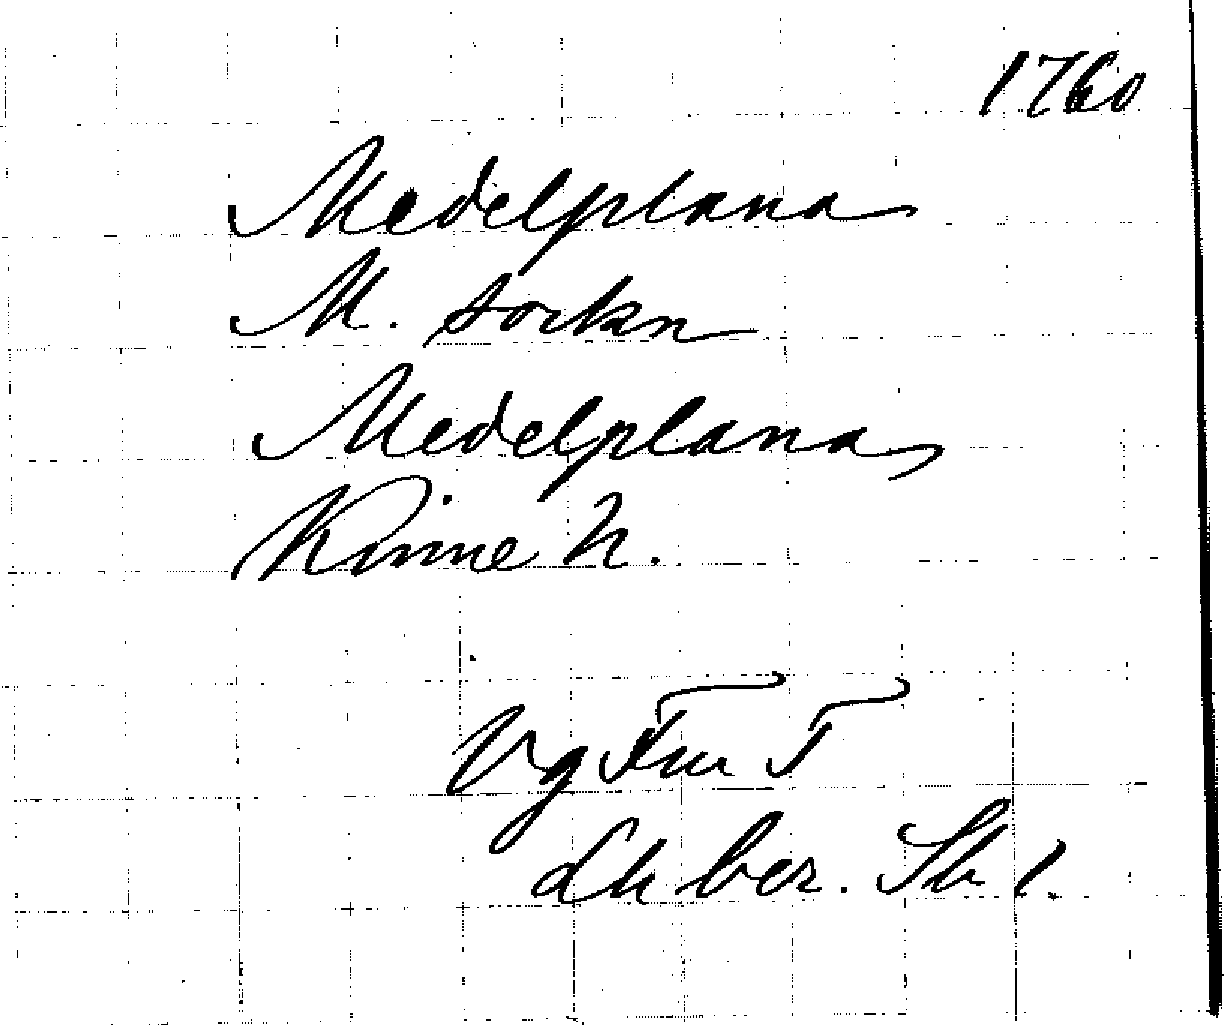 1760
Medelplana
M. sockn
Medelplana
Kinne H.
Vg Fm T
Lh ber. Sk 1.